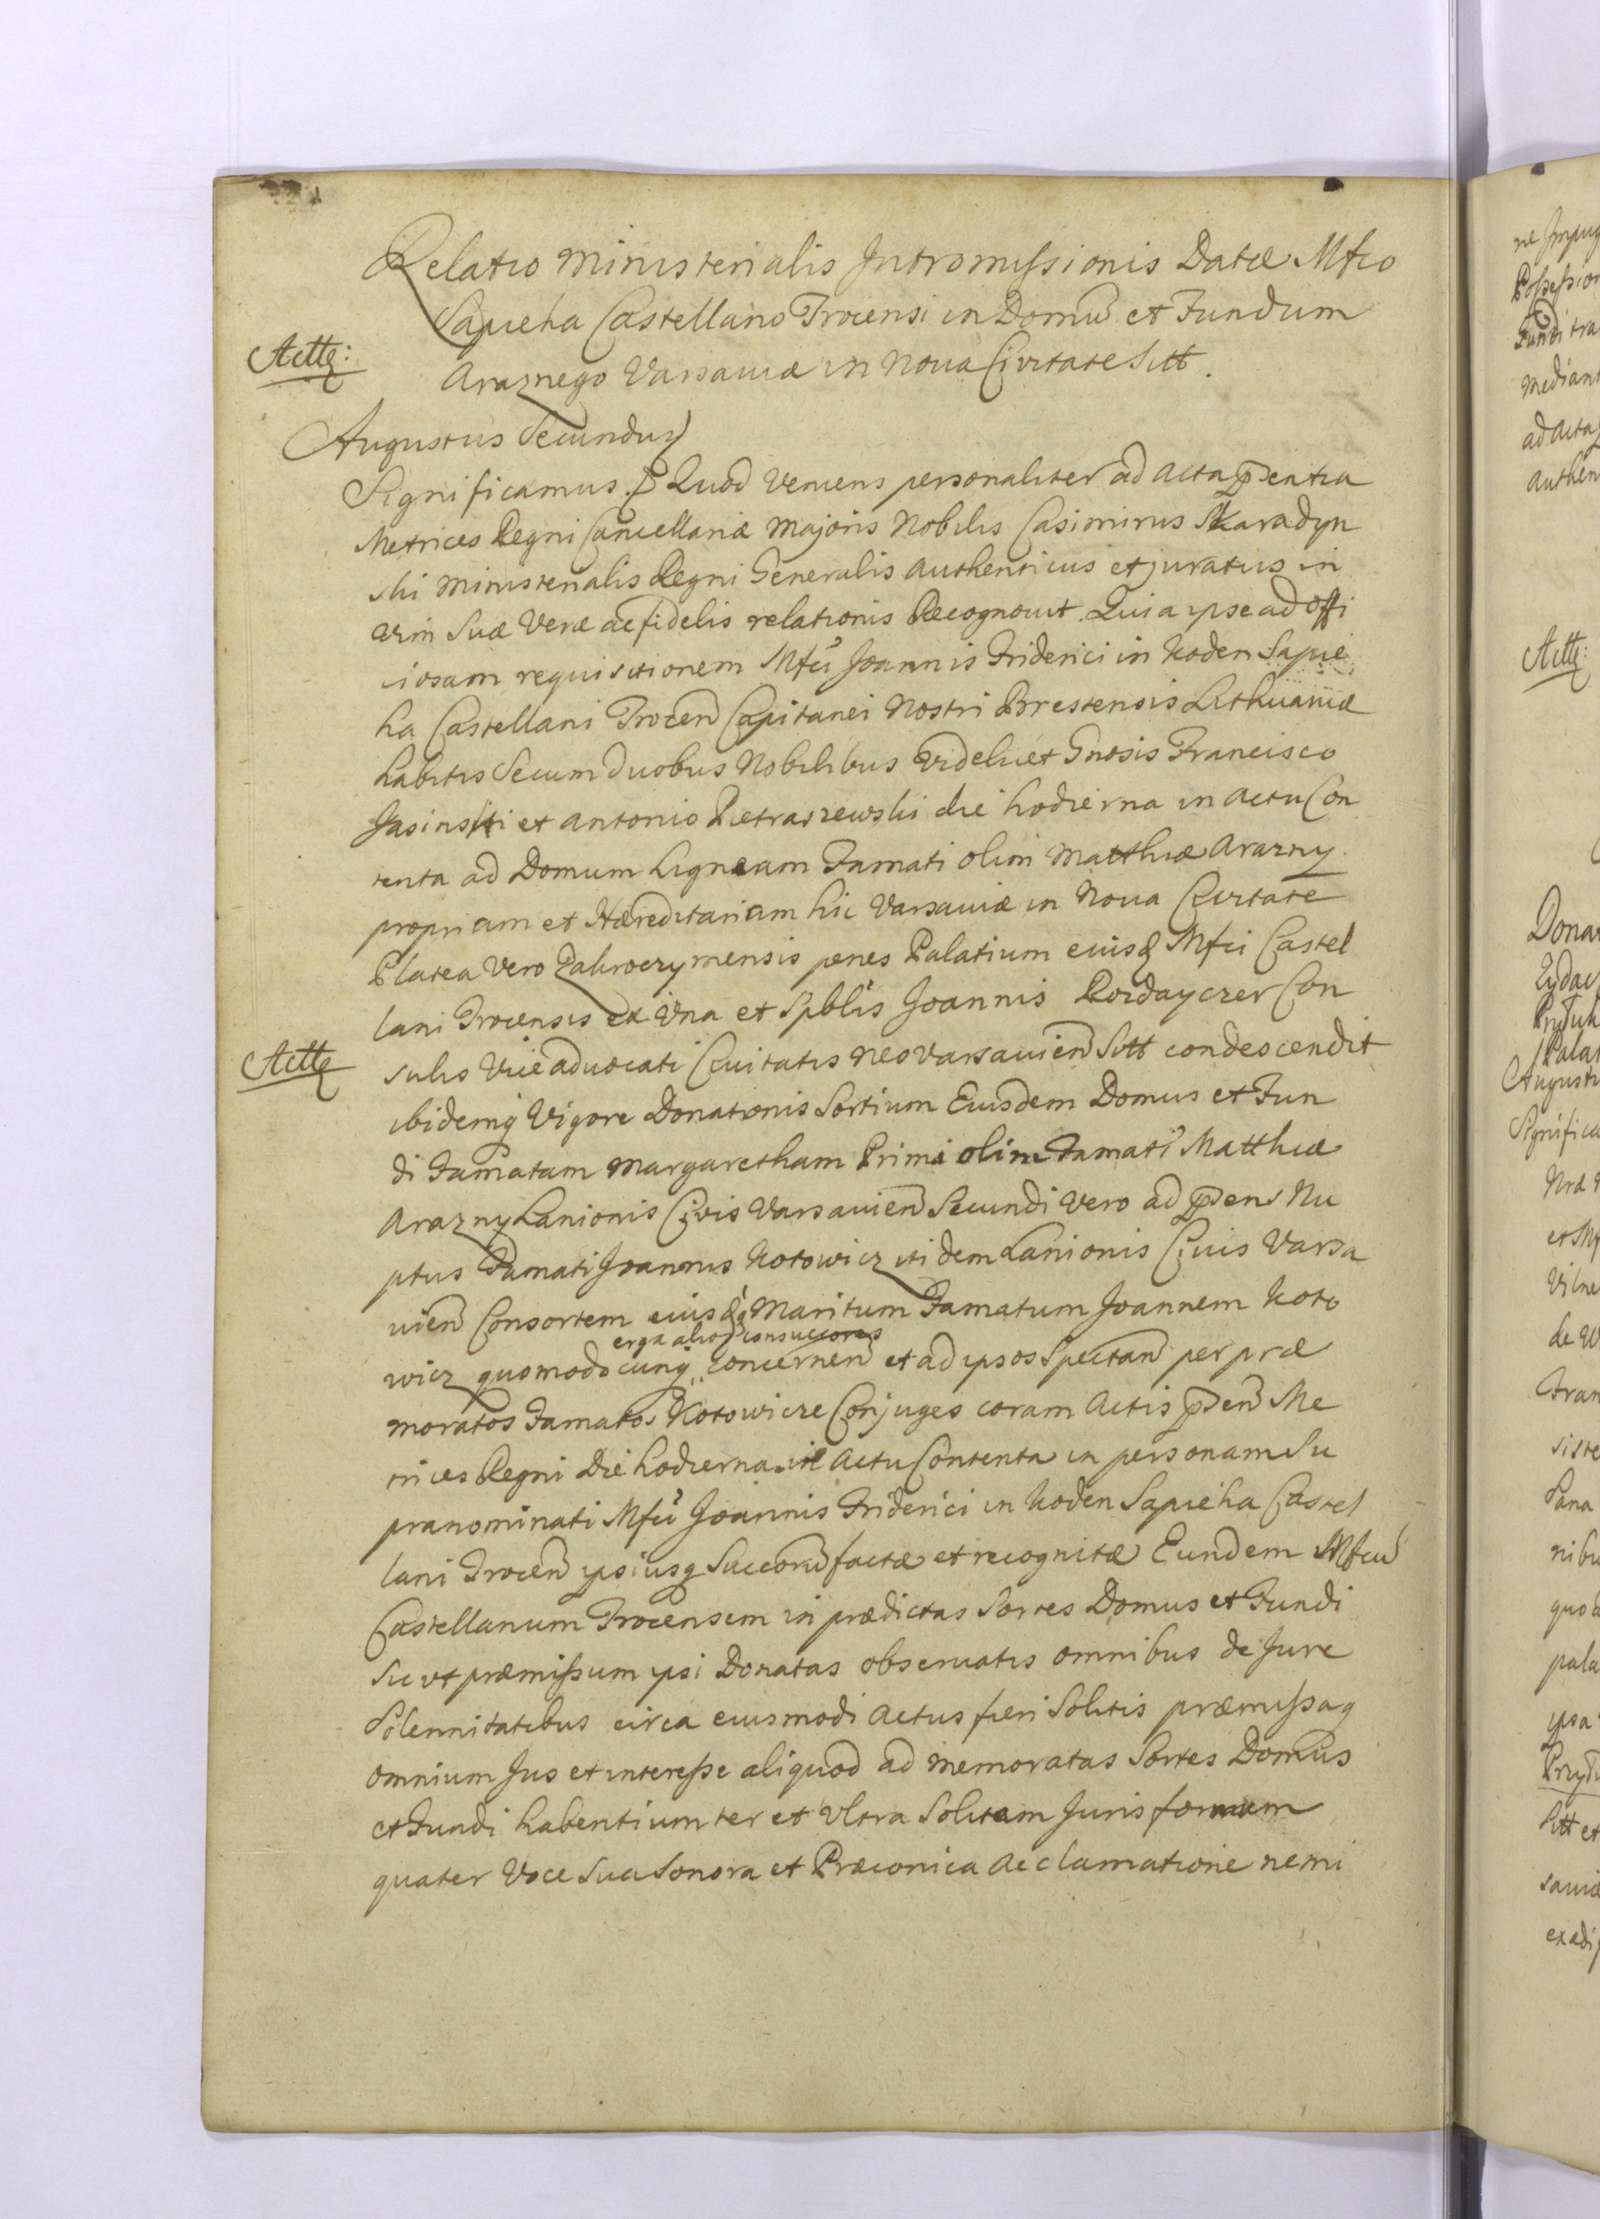 Relatio Ministerialis Intromissionis Datæ Mfco
Sapieha Castellano Trocensi in Domũ et Fundum
Araznego Varsaviæ in Nova Civitate Sitt.
Actt:
Augustus Secundus
Significamus. Quod veniens personaliter ad Acta p̄sentia
Metrices Regni Cancellariæ Majoris Nobilis Casimirus Skaradyn
ski Ministerialis Regni Generalis Authenticus et juratus in
vim Suæ Veræ ac fidelis relationis Recognovit. Quia ipse ad offi
ciosam requisitionem Mfci Joannis Friderici in Koden Sapie
ha Castellani Trocen Capitanei Nostri Brestensis Lithuaniæ
habitis Secum duobus Nobilibus videlicet Gnosis Francisco
Jasinski et Antonio Pietraszewski die hodierna in actu Con
tenta ad Domum Ligneam Famati olim Matthiæ Arazny
propriam et Hæreditariam hic Varsaviæ in Nova Civitate
Platea Vero Zakroczymensis penes Palatium eiusd Mfci Castel
lani Trocensis ex Una et Spblis Joannis Bordayczer Con
sulis Vice advocati Civitatis Neo Varsavien Sitt condescendit
Actt
ibidemq Vigore Donationis Sortium Eiusdem Domus et Fun
di Famatam Margaretham Primi olim Famati Matthiæ
Arazny Lanionis Civis Varsavien Secundi Vero ad p̄sens Nu
ptus Famati Joannis Kotowicz itidem Lanionis Civis Varsa
vien Consortem eiusdq Maritum Famatum Joannem Koto
erga alios consuccores
wicz quomodocunq concernen et ad ipsos Spectan per præ
moratos Famatos Kotowicze Conjuges coram Actis p̄sen Me
trices Regni Die hodierna in Actu Contenta in personam Su
pranominati Mfci Joannis Friderici in Koden Sapieha Castel
lani Trocen ipsiusq Succorũ factæ et recognitæ Eundem Mfcũ
Castellanum Trocensem in prædictas Sortes Domus et Fundi
Sic ut præmissum ipsi Donatas observatis omnibus de Jure
Solennitatibus circa eiusmodi Actus fieri Solitis præmissaq
omnium Jus et interesse aliquod ad memoratas Sortes Domus
et Fundi habentium ter et Ultra Solitam Juris formam
quater Voce Sua Sonora et Præconica acclamatione nemi